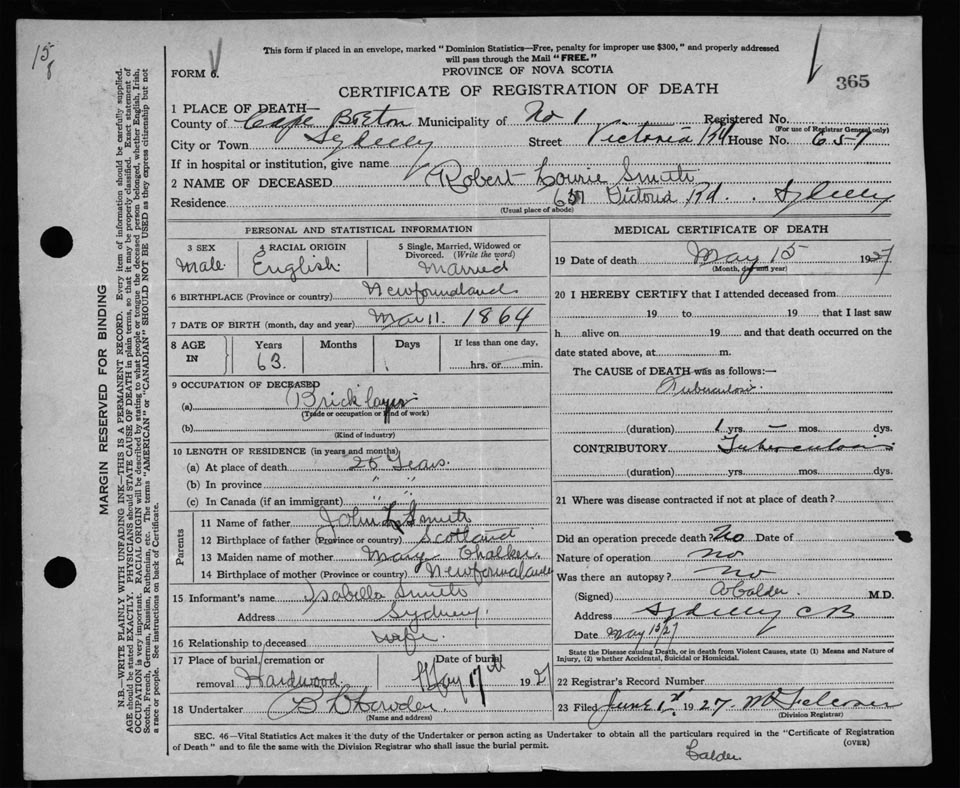 15
8
This form if placed in an envelope, marked "Dominion Statistics—Free, penalty for improper use $300," and properly addressed
will pass through the Mail "FREE."
FORM 6.
PROVINCE OF NOVA SCOTIA
365
CERTIFICATE OF REGISTRATION OF DEATH
1 PLACE OF DEATH—
County of Cape Breton Municipality of No 1 Registered No.
(For use of Registrar General only)
City or Town Sydney Street Victoria Rd House No. 657
If in hospital or institution, give name
2 NAME OF DECEASED Robert Lowrie Smith
Residence 657 Victoria Rd. Sydney
(Usual place of abode)
PERSONAL AND STATISTICAL INFORMATION
3 SEX Male
4 RACIAL ORIGIN English
5 Single, Married, Widowed or Divorced. (Write the word) Married
6 BIRTHPLACE (Province or country) Newfoundland
7 DATE OF BIRTH (month, day and year) Mar 11. 1864
8 AGE IN Years 63. Months Days If less than one day, hrs. or min.
9 OCCUPATION OF DECEASED
(a) Bricklayer
(Trade or occupation or kind of work)
(b)
(Kind of industry)
10 LENGTH OF RESIDENCE (in years and months)
(a) At place of death 26 Years.
(b) In province " "
(c) In Canada (if an immigrant) " "
Parents
11 Name of father John L Smith
12 Birthplace of father (Province or country) Scotland
13 Maiden name of mother Mary Chalker
14 Birthplace of mother (Province or country) Newfoundland
15 Informant's name Isabella Smith
Address Sydney
16 Relationship to deceased wife.
17 Place of burial, cremation or removal Hardwood Date of burial May 17th 1927
18 Undertaker
(Name and address)
MEDICAL CERTIFICATE OF DEATH
19 Date of death May 15 1927
(Month, day and year)
20 I HEREBY CERTIFY that I attended deceased from
19 to 19 that I last saw
h alive on 19 and that death occurred on
date stated above, at m.
The CAUSE of DEATH was as follows:—
Tuberculosis.
(duration) 1 yrs. – mos. dys.
CONTRIBUTORY Tuberculosis
(duration) yrs. mos. dys.
21 Where was disease contracted if not at place of death?
Did an operation precede death? No Date of
Nature of operation no
Was there an autopsy? no
(Signed) Calder. M.D.
Address Sydney CB
Date May 15/27
State the Disease causing Death, or in death from Violent Causes, state (1) Means and Nature of
Injury, (2) whether Accidental, Suicidal or Homicidal.
22 Registrar's Record Number
23 Filed June 1st 1927.
(Division Registrar)
SEC. 46—Vital Statistics Act makes it the duty of the Undertaker or person acting as Undertaker to obtain all the particulars required in the "Certificate of Registration
of Death" and to file the same with the Division Registrar who shall issue the burial permit.
(OVER)
Calder
MARGIN RESERVED FOR BINDING
N.B.—WRITE PLAINLY WITH UNFADING INK—THIS IS A PERMANENT RECORD. Every item of information should be carefully supplied.
AGE should be stated EXACTLY. PHYSICIANS should STATE CAUSE OF DEATH in plain terms, so that it may be properly classified. Exact statement of
OCCUPATION is very important. RACIAL ORIGIN will be described by stating to what people or tongue the deceased person belonged, whether English, Irish,
Scotch, French, German, Russian, Ruthenian, etc. The terms "AMERICAN" or "CANADIAN" SHOULD NOT BE USED as they express citizenship but not
a race or people. See instructions on back of Certificate.